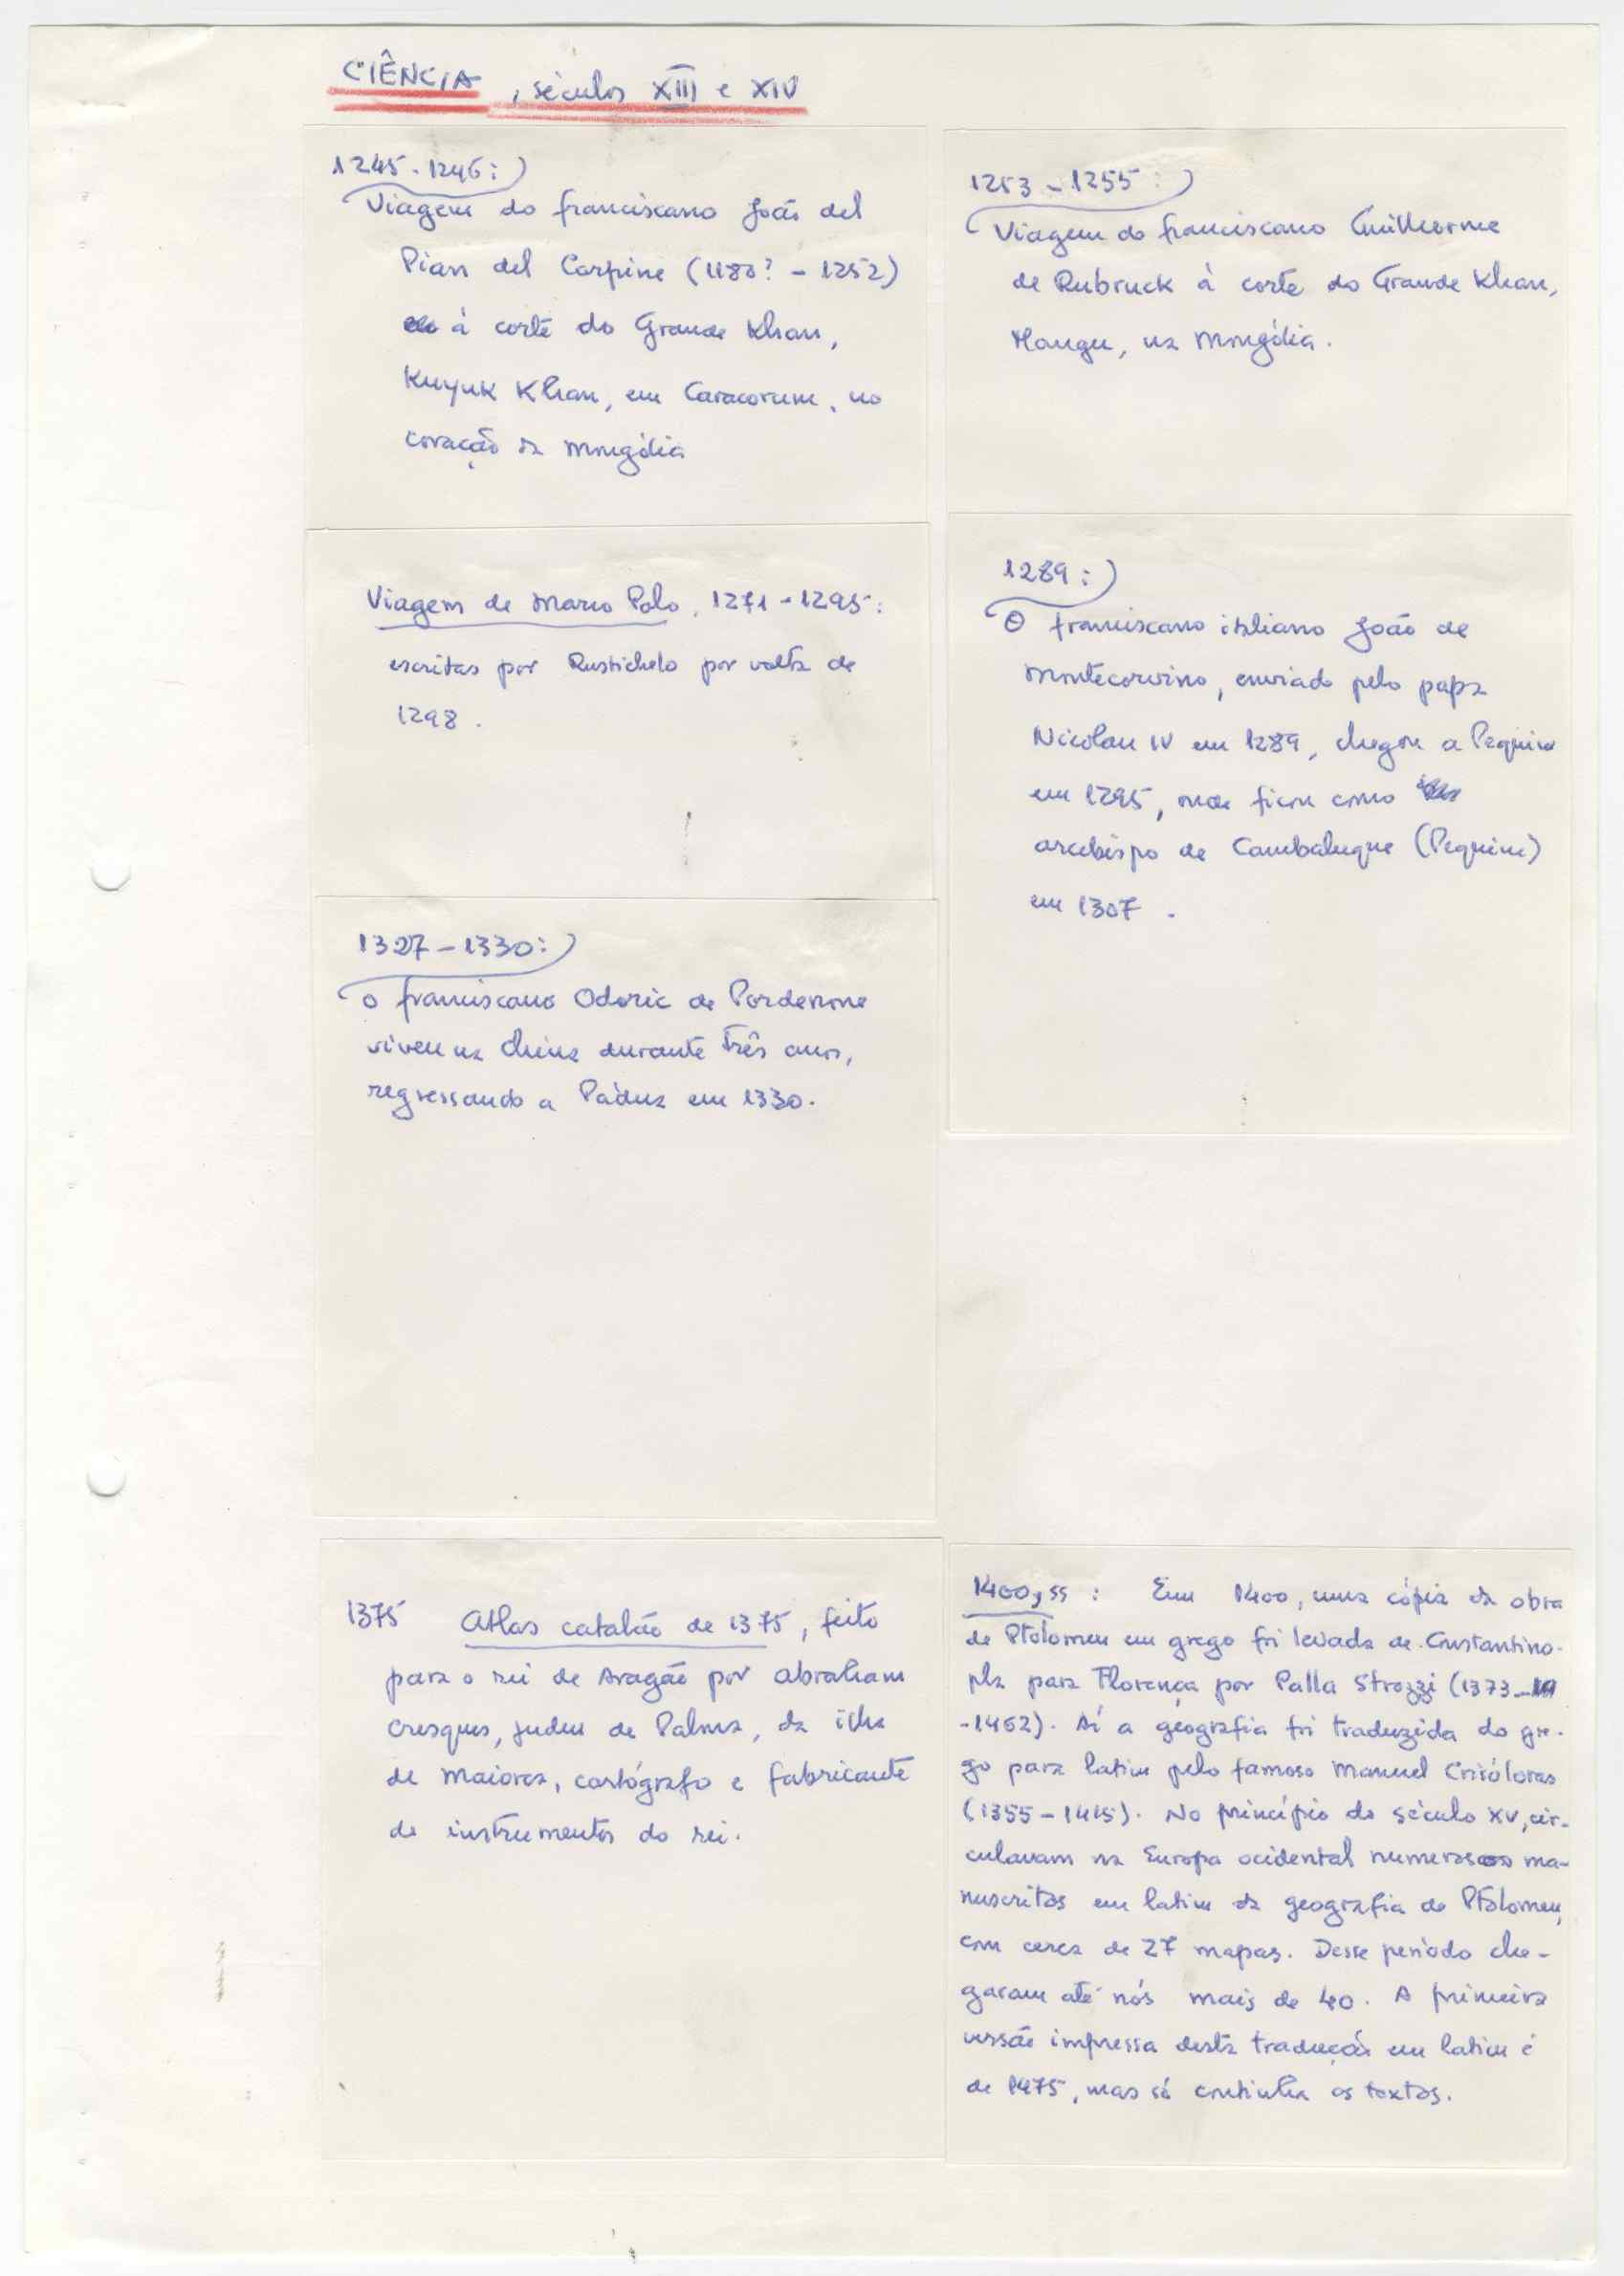 CIÊNCIA, séculos XIII e XIV
1245-1246:)
Viagem do franciscano João del
Pian del Carpine (1180? - 1252)
à corte do Grande Khan,
Kuyuk Khan, em Caracorum, no
coração da Mongólia
1253-1255:)
Viagem do franciscano Guilherme
de Rubruck à corte do Grande Khan,
Mangu, na Mongólia.
Viagem de Marco Polo, 1271-1295:
escritas por Rustichelo por volta de
1298.
1289:)
O franciscano italiano João de
Montecorvino, enviado pelo papa
Nicolau IV em 1289, chegou a Pequim
em 1295, onde ficou como
arcebispo de Cambaluque (Pequim)
em 1307.
1327-1330:)
O franciscano Odoric de Pordenone
viveu na China durante três anos,
regressando a Pádua em 1330.
1375 Atlas catalão de 1375, feito
para o rei de Aragão por Abraham
Cresques, judeu de Palma, da ilha
de Maiorca, cartógrafo e fabricante
de instrumentos do rei.
1400,ss: Em 1400, uma cópia da obra
de Ptolomeu em grego foi levada de Constantino-
pla para Florença por Palla Strozzi (1373-
-1462). Aí a geografia foi traduzida do gre-
go para latim pelo famoso Manuel Crisóloras
(1355-1415). No princípio do século XV, cir-
culavam na Europa ocidental numerosos ma-
nuscritos em latim da geografia de Ptolomeu,
com cerca de 27 mapas. Desse período che-
garam até nós mais de 40. A primeira
versão impressa desta tradução em latim é
de 1475, mas só continha os textos.